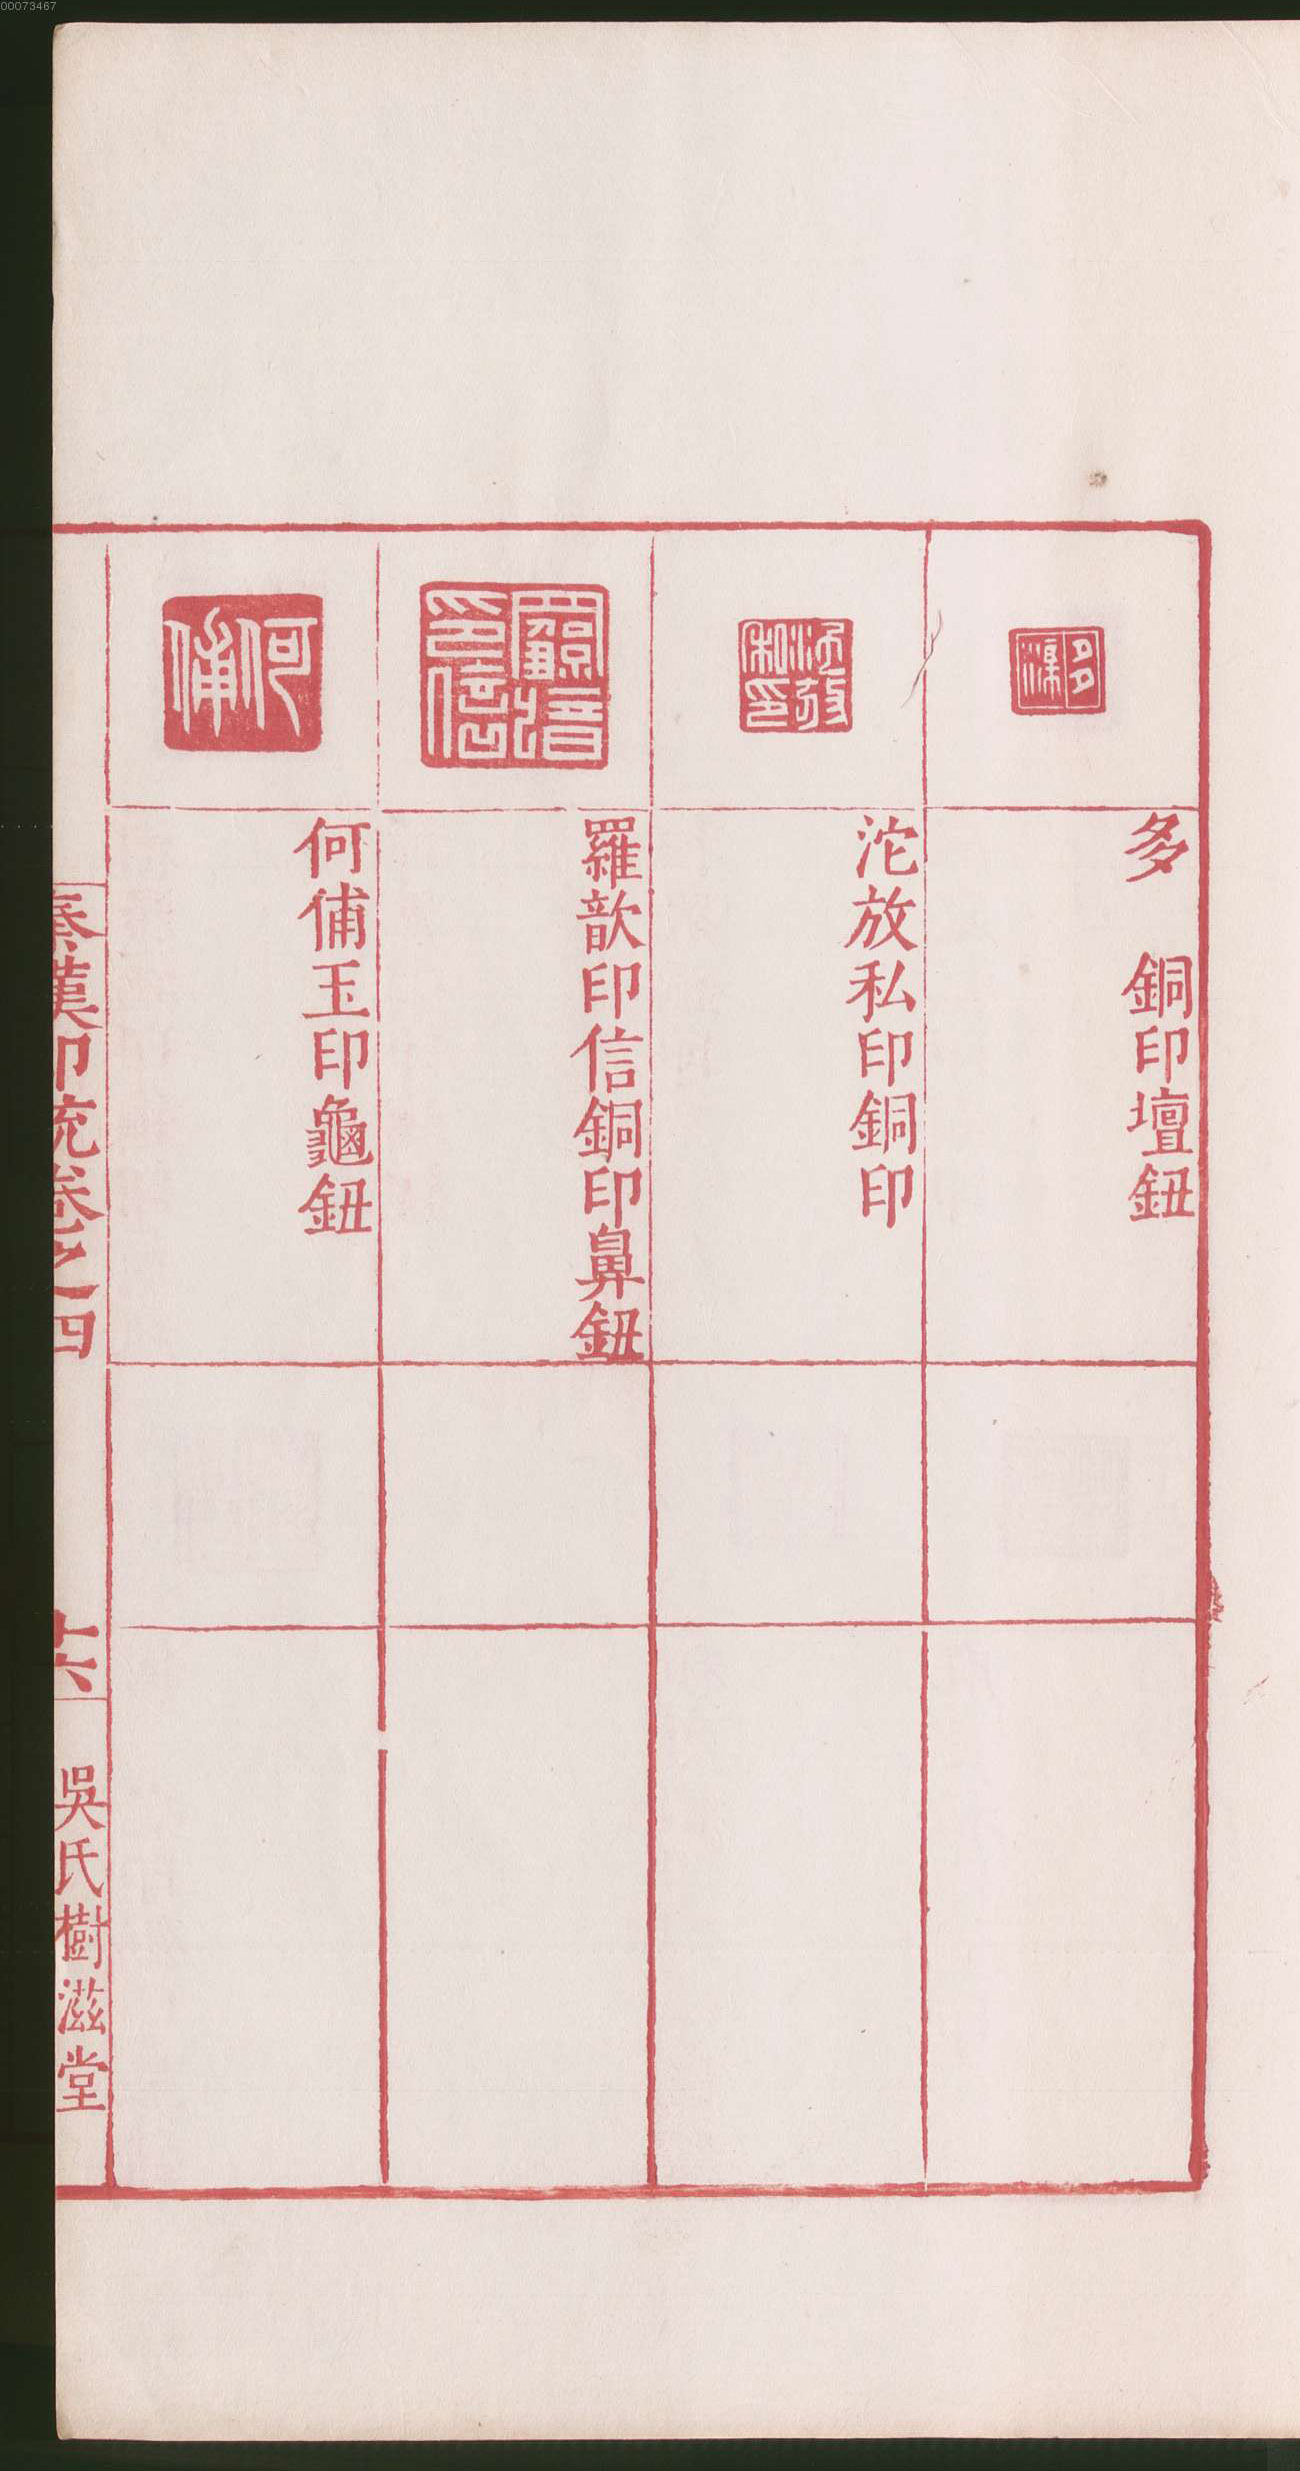 00073467
多　銅印壇鈕
沱放私印銅印
羅歆印信銅印鼻鈕
何俌玉印龜鈕
秦漢印統卷之四
十六
吳氏樹滋堂
何俌